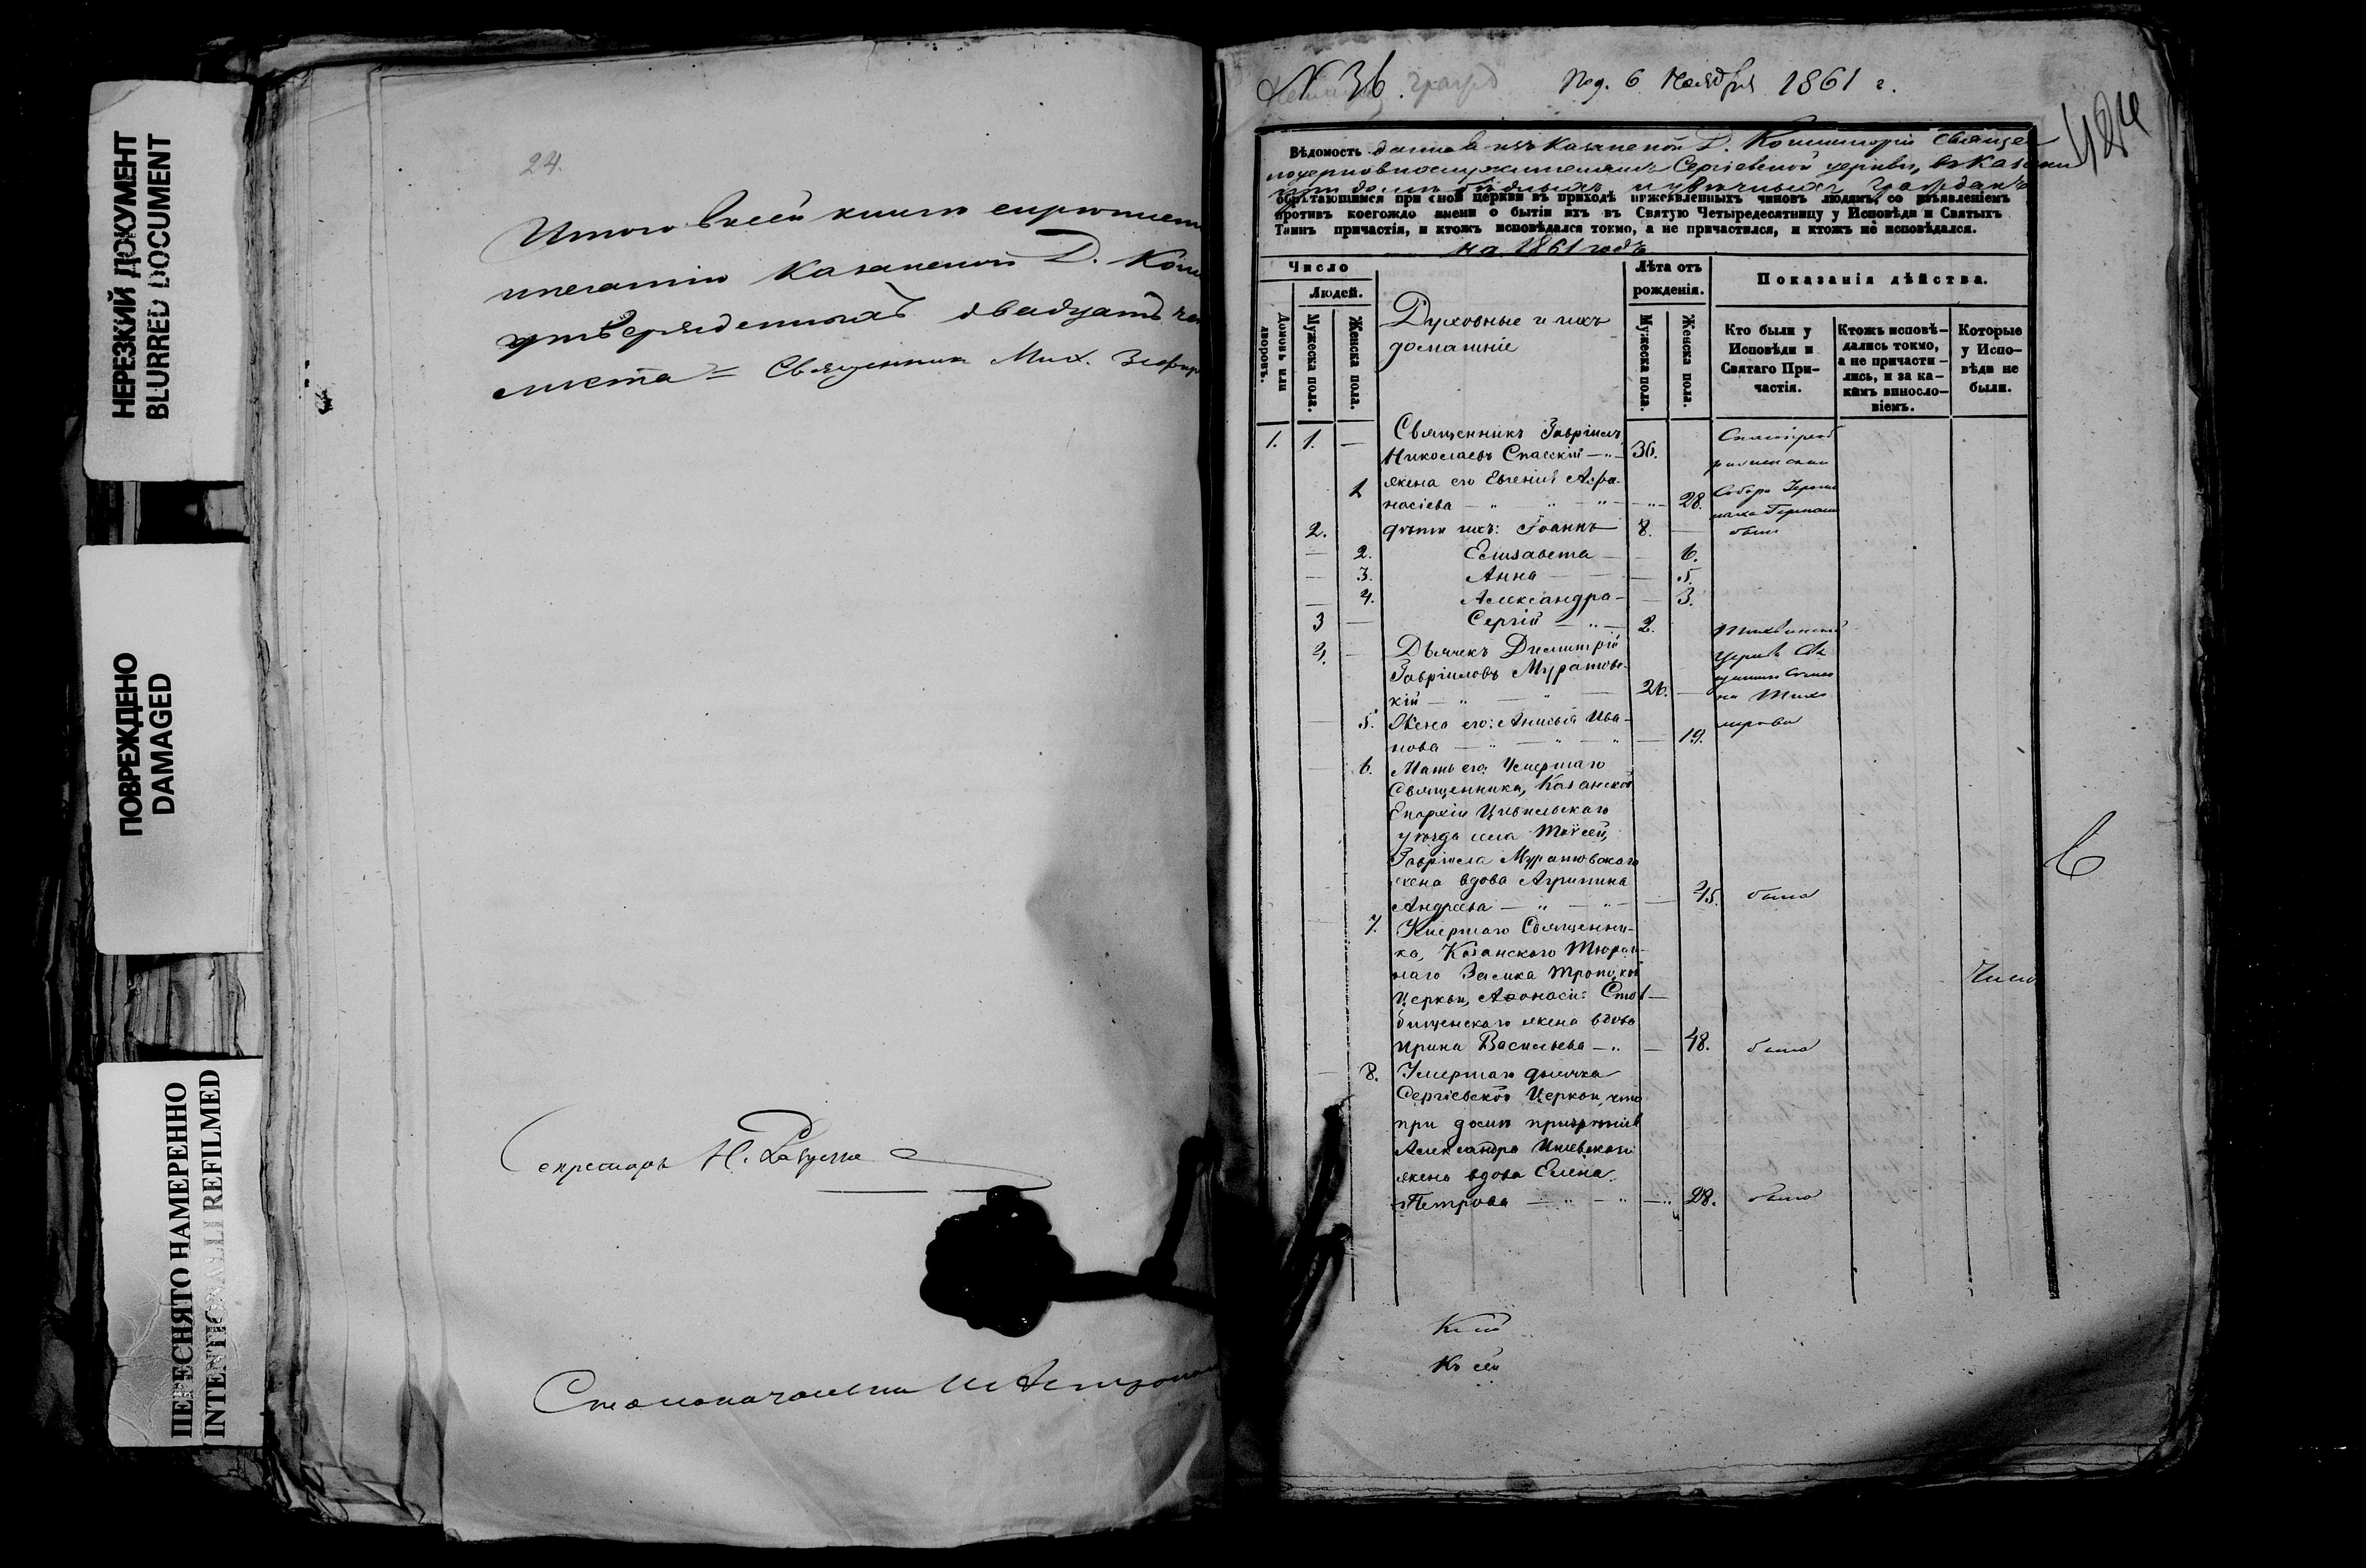 НЕРЕЗКИЙ ДОКУМЕНТ
BLURRED DOCUMENT
ПОВРЕЖДЕНО
DAMAGED
ПЕРЕСНЯТО НАМЕРЕННО
INTENTIONALLI REFILMED
24.
Итого в сей книге скрепленн
печатію Казанской Д. Кон
утвержденныхъ двадцать че
листа = Священникъ Мих. Зефир
Секретарь Н.
Столоначальникъ
№ 36. Под. 6 Ноября 1861 г.
424
Вѣдомость данная изъ Казанской Д. Консисторіи Священ
ноцерковнослужителямъ Сергіевской церкви, въ Казани
при домѣ бѣдныхъ и увѣчныхъ гражданъ
обрѣтающимся при оной церкви въ приходѣ нижеявленныхъ чиновъ людямъ, со изъявленіемъ
противъ коегождо имени о бытіи ихъ въ Святую Четыредесятницу у Исповѣди и Святыхъ
Таинъ причастія, и ктожъ исповѣдался токмо, а не причастился, и ктожъ не исповѣдался.
на 1861 годъ
Число
Людей.
Домовъ или дворовъ.
Мужеска пола.
Женска пола.
Духовные и ихъ
домашніе
Лѣта отъ
рожденія.
Мужеска пола.
Женска пола.
Показанія дѣйства.
Кто были у
Исповѣди и
Святаго При-
частія.
Ктожъ исповѣ-
дались токмо,
а не причасти-
лись, и за ка-
кимъ винносло-
віемъ.
Которые
у Испо-
вѣди не
были.
1. 1. — Священникъ Гавріилъ
Николаевъ Спасскій — 36.
1 жена его Евгенія Афа-
насіева — 28. Собора
2. дѣти ихъ: Іоаннъ 8. — были
— 2. Елисавета — 6.
— 3. Анна — 5.
— 4. Александра — 3.
3 — Сергій — 2.
4. — Дьячекъ Димитрій
Гавріиловъ Муратовс-
кій — 26. —
Тихвинской
Церкв Св
— 5. Жена его: Анисья Ива-
нова — 19.
— 6. Мать его: Умершаго
Священника, Казанской
Епархіи Цивильскаго
уѣзда села Тойсей,
Гавріила Муратовскаго
жена вдова Агрипина
Андреева — 45. была
7. Умершаго Священни-
ка, Казанского Тюрем-
наго Замка Троицкой
Церкви, Аѳонасія Стол-
бищенскаго жена вдова
Ирина Васильева — 48. была
— 8. Умершаго дьячка
Сергіевской Церкви, что
при домѣ призрѣнія
Александра
жена вдова Елена
Петрова — 28. была
Число
Къ сей
Къ сей